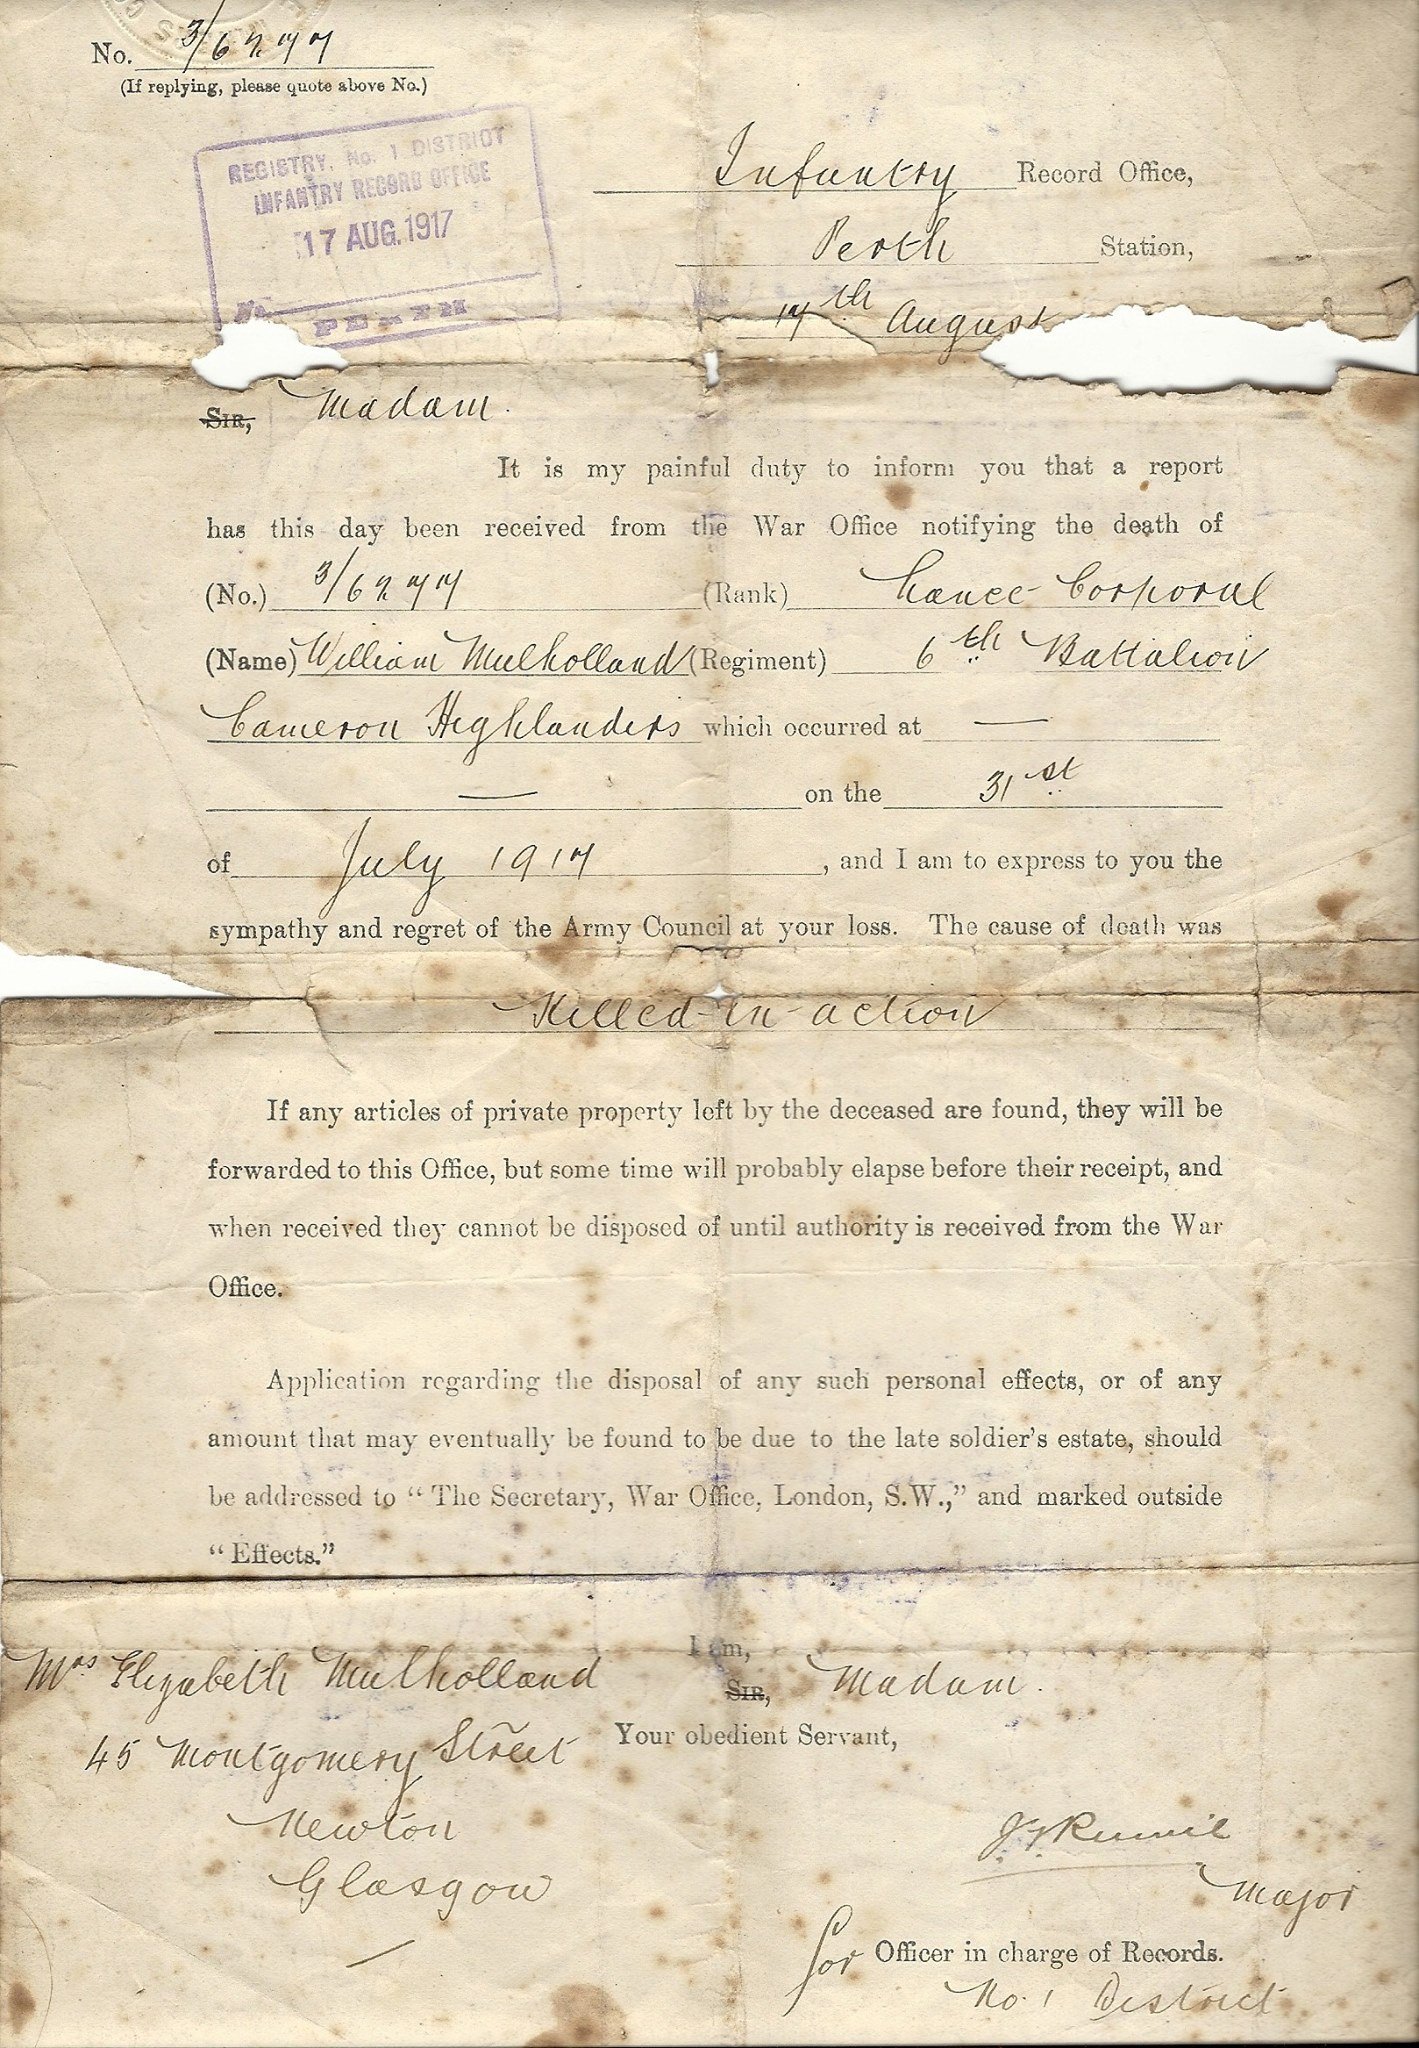 No. 3/6277
(If replying, please quote above No.)
REGISTRY, No. 1 DISTRICT
INFANTRY RECORD OFFICE
17 AUG. 1917
PERTH
Infantry Record Office,
Perth Station,
17th August
Sir, Madam.
It is my painful duty to inform you that a report
has this day been received from the War Office notifying the death of
(No.) 3/6277 (Rank) Lance-Corporal
(Name) William Mulholland (Regiment) 6th Battalion
Cameron Highlanders which occurred at —
— on the 31st
of July 1917, and I am to express to you the
sympathy and regret of the Army Council at your loss. The cause of death was
Killed-in-action
If any articles of private property left by the deceased are found, they will be
forwarded to this Office, but some time will probably elapse before their receipt, and
when received they cannot be disposed of until authority is received from the War
Office.
Application regarding the disposal of any such personal effects, or of any
amount that may eventually be found to be due to the late soldier's estate, should
be addressed to “ The Secretary, War Office, London, S.W.,” and marked outside
“ Effects.”
I am,
Sir, Madam.
Your obedient Servant,
Mrs Elizabeth Mulholland
45 Montgomery Street
Newton
Glasgow
Major
for Officer in charge of Records.
No. 1 District